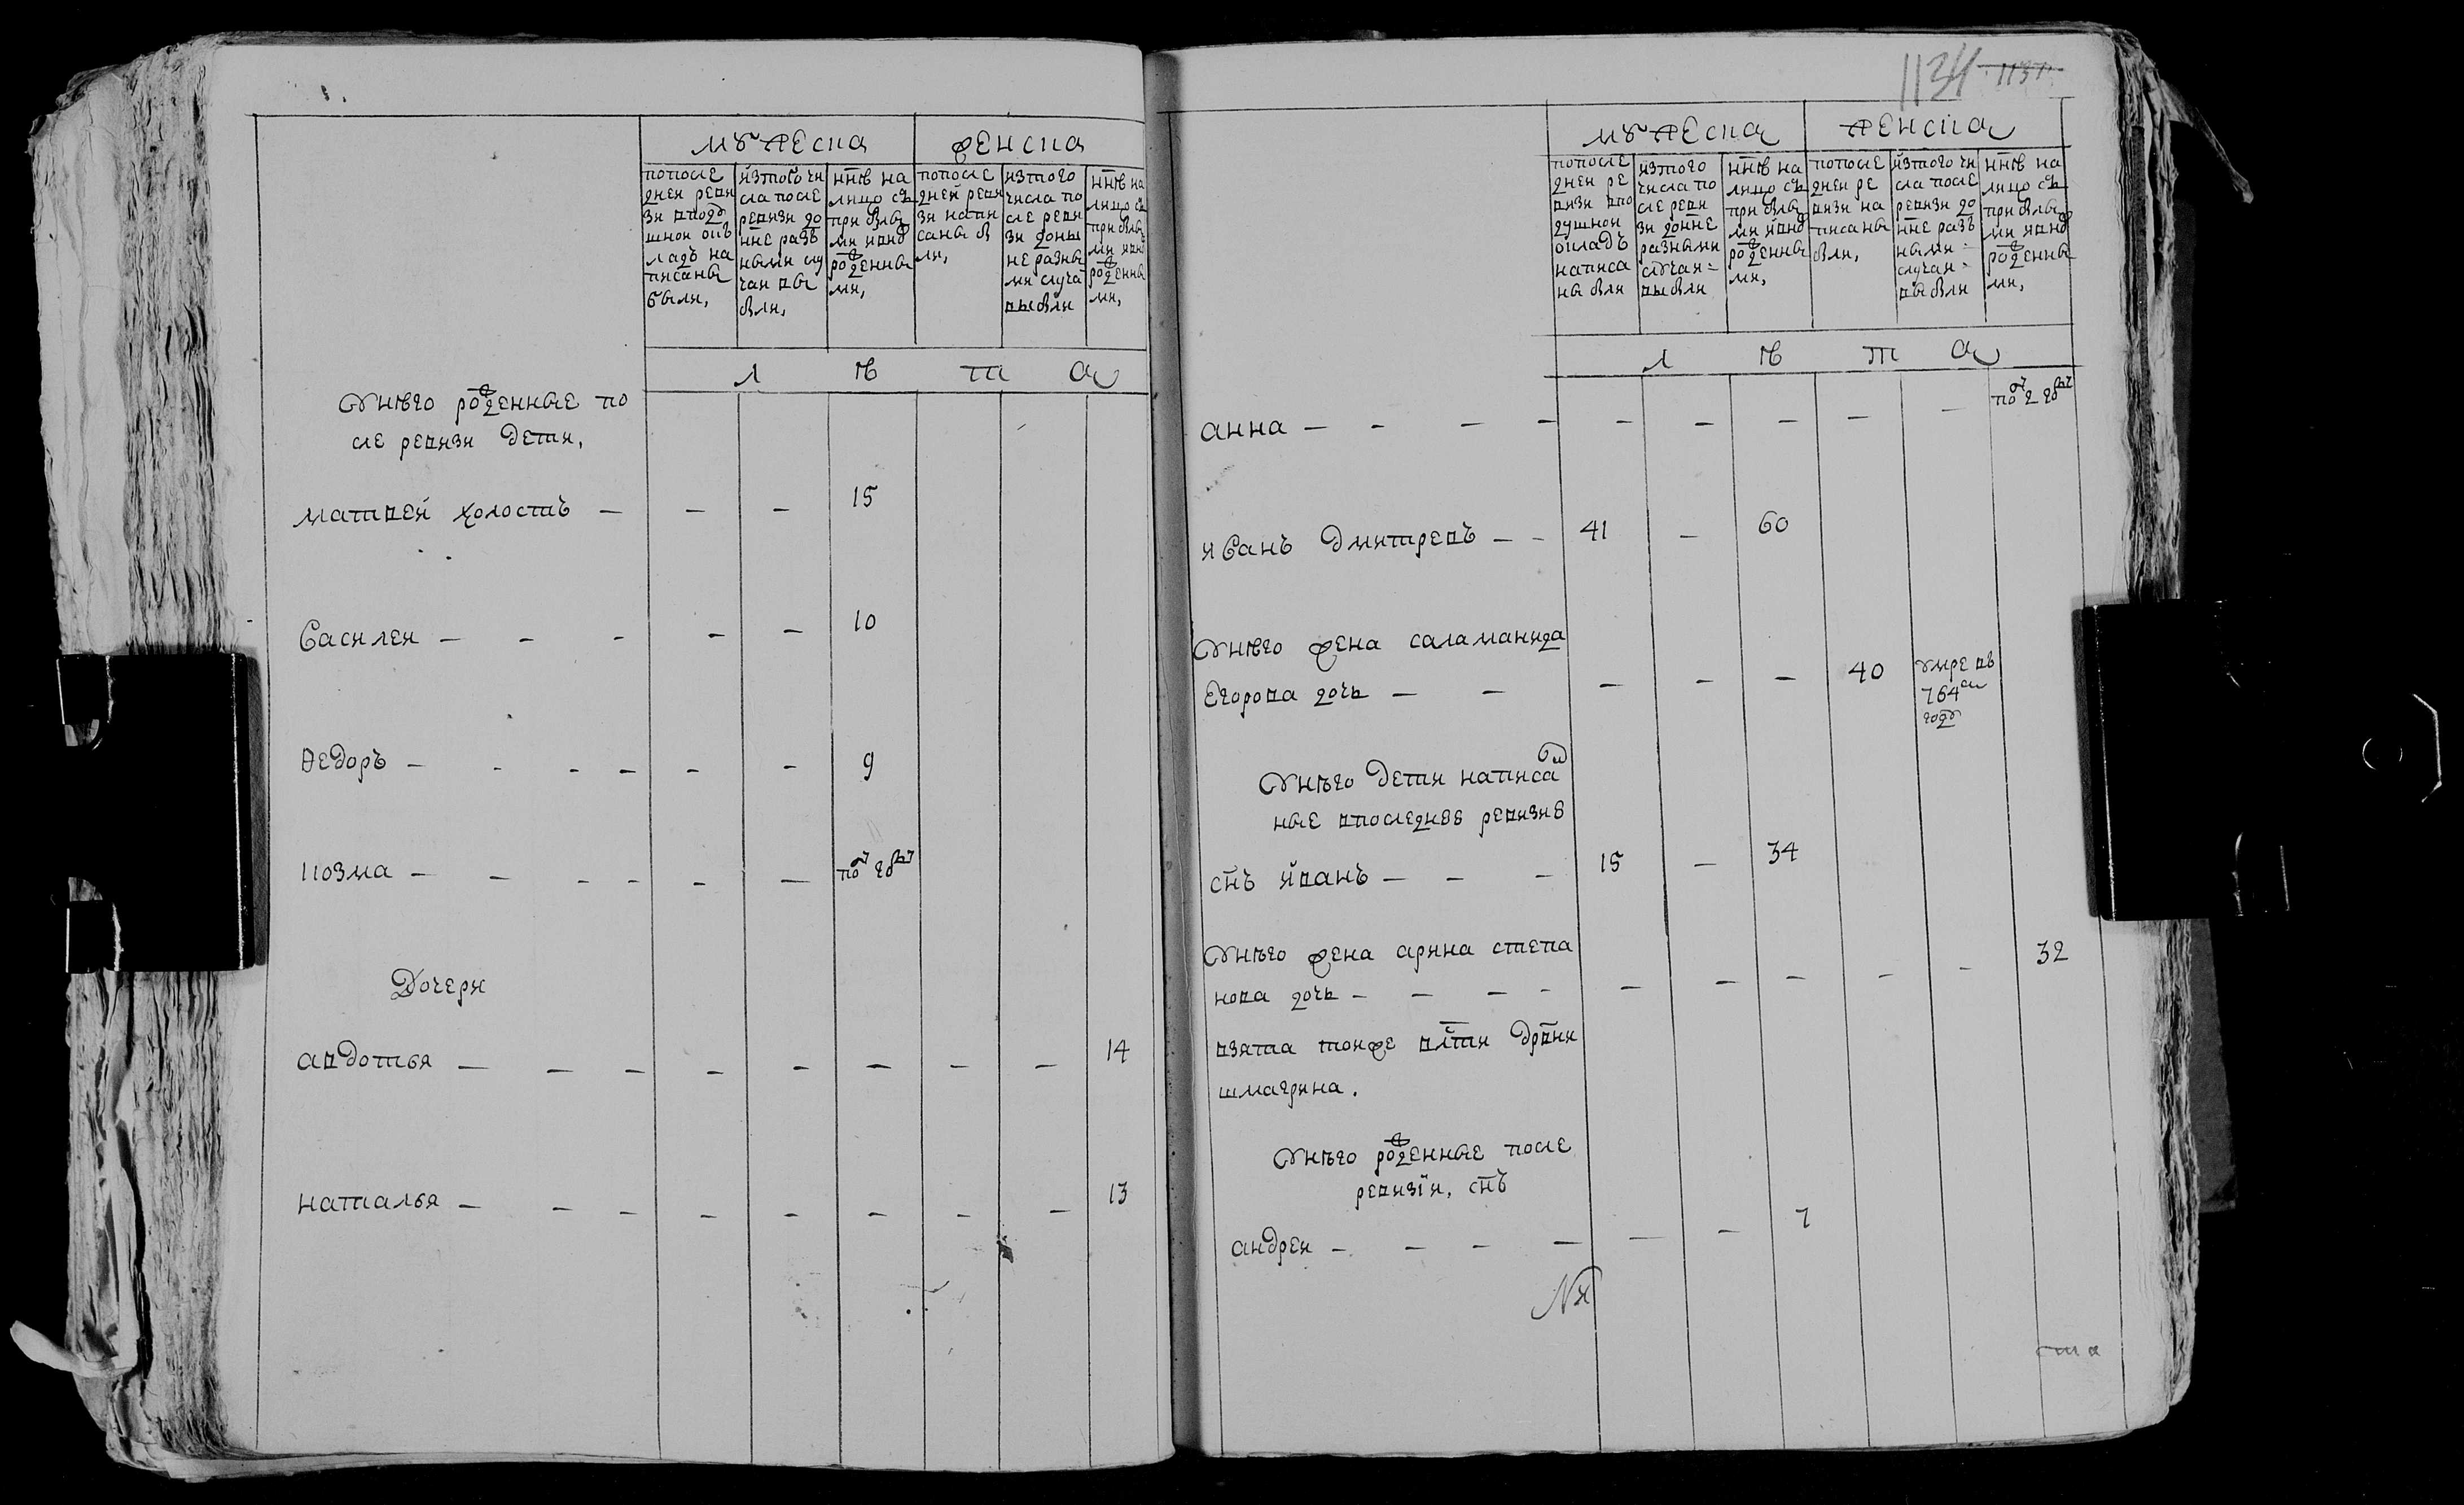 мужеска женска
попосле дней реви зи вподу шной окъ ладъ на писаны были,
изтого чи сла после ревизи до нне раз ными слу чаи вы были,
нне на лицо съ прибылы ми и вно рожденны ми,
попосле дней реви зи напи саны бы ли,
изтого числа по сле реви зи доны не разны ми случа выбыли
нне на лицо съ прибылы ми и вно рожденны ми,
л ѣ т а
Унѣго рожденные по
сле ревизи дети,
матвей холостъ — — — 15
василей — — — — — 10
Ѳедоръ — — — — — — 9
козма — — — — — — полгоду
Дочери
авдотья — — — — — — — — 14
наталья — — — — — — — — 13
1134 1137
мужеска женска
попосле дней ре визи впо душной окладъ написа ны были
изтого числа по сле реви зи донне разными случаи выбыли
нне на лицо съ прибылы ми и вно рожденны ми,
попосле дней ре визи на писаны были,
изтого чи сла после ревизи до нне раз ными случаи выбыли
нне на лицо съ прибылы ми и вно рожденны ми,
л ѣ т а
анна — — — — — — — — — пол 2 году
иванъ дмитревъ — — 41 — 60
Унѣго жена саламанида
Егорова дочь — — — — — 40 умре въ 764м году
Унѣго дети написа
ные впоследнеѣ ревизиѣ
снъ иванъ — — — 15 — 34
Унѣго жена арина степа
нова дочь — — — — — — — — — 32
взята тойже влсти дрвни
шмагрина.
Унѣго рожденные после
ревизіи, снъ
андреи — — — — — — 7